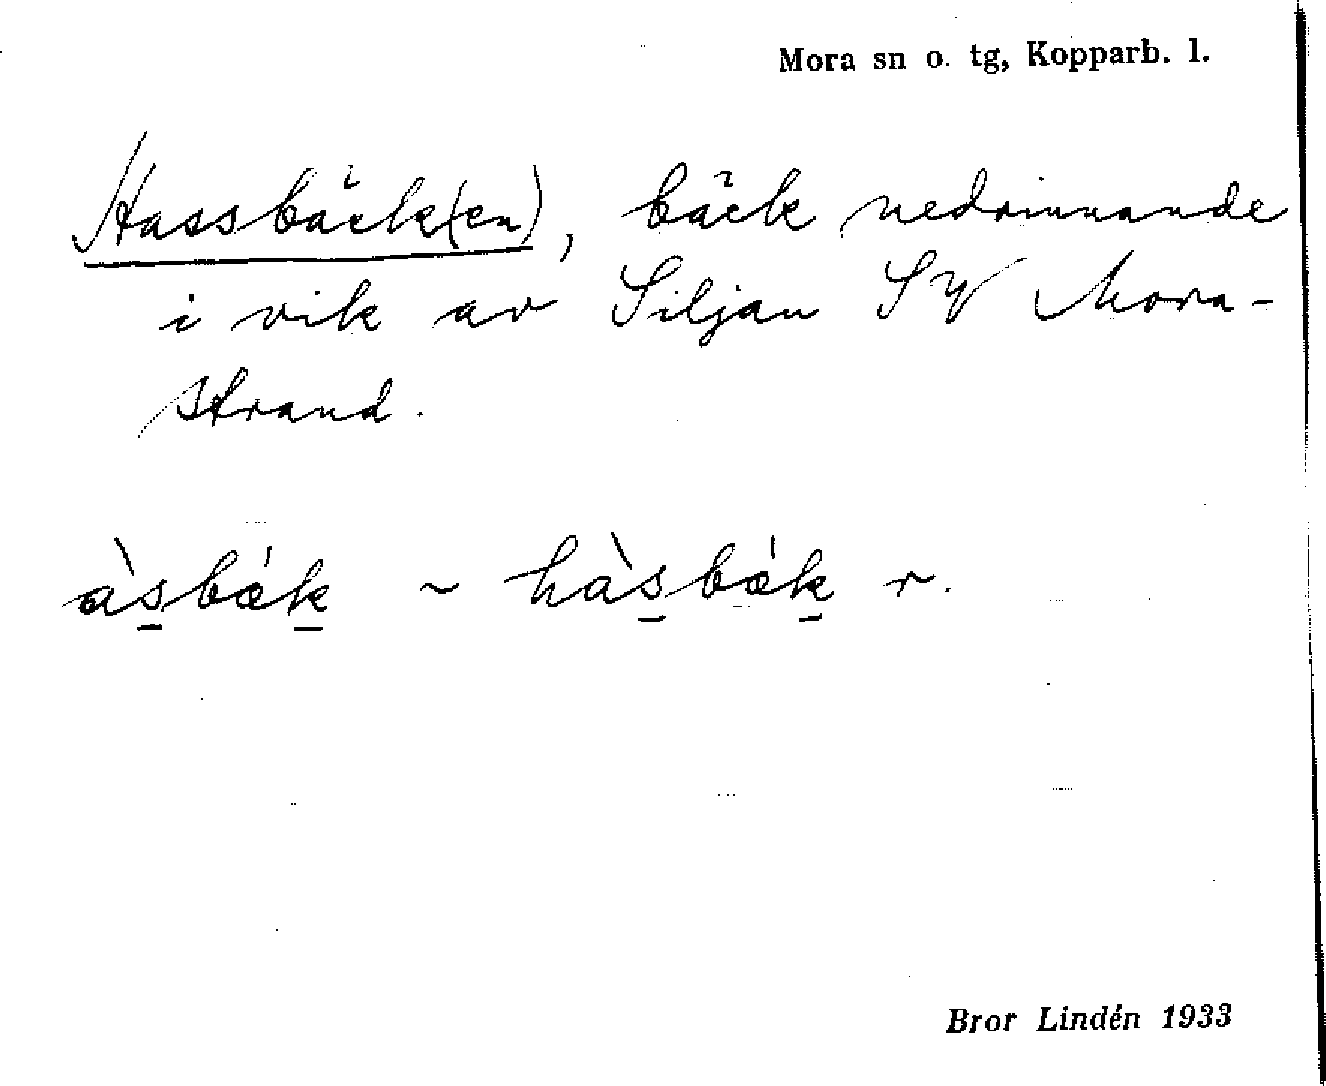 Mora sn o. tg, Kopparb. l.
Hassbäck(en), bäck nedrinnande
i vik av Siljan SV Mora-
strand.
àsbǽk ~ hàsbǽk r.
Bror Lindén 1933